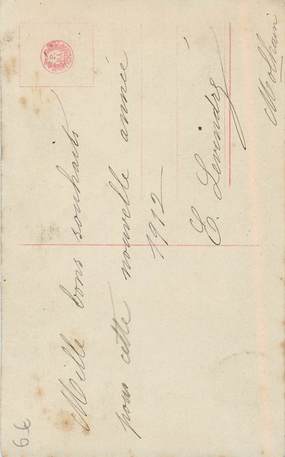 Mille bons souhaits
pour cette nouvelle année
1912
E. Levindrey
Molhain
6€